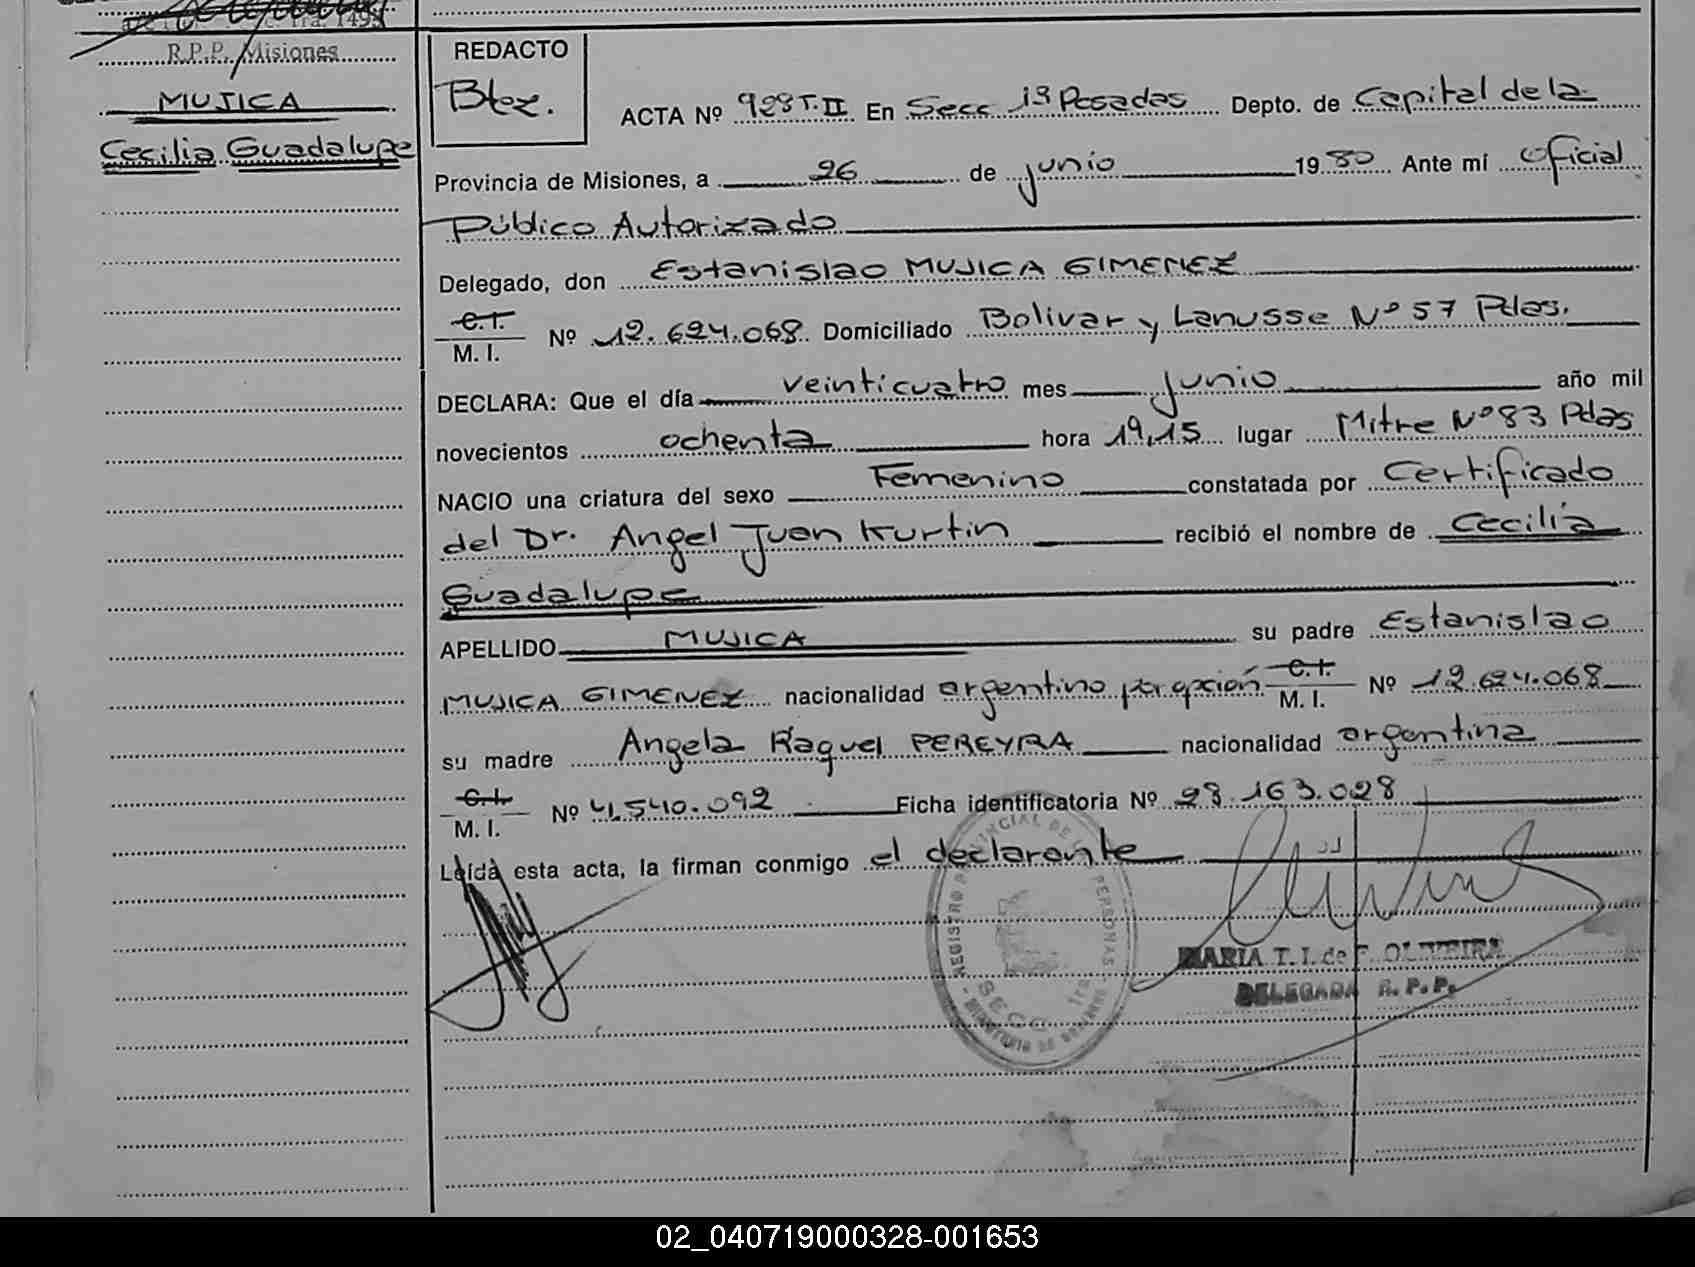 R.P.P. Misiones
MUJICA
Cecilia Guadalupe
REDACTO
Btez.
ACTA Nº 928 T.II En Secc 1ª Posadas Depto. de Capital de la
Provincia de Misiones, a 26 de junio 1980 Ante mí Oficial
Público Autorizado
Delegado, don Estanislao MUJICA GIMENEZ
C.I.
M. I. Nº 12.624.068 Domiciliado Bolivar y Lanusse Nº 57 Pdas.
DECLARA: Que el día veinticuatro mes junio año mil
novecientos ochenta hora 19,15 lugar Mitre Nº 83 Pdas
NACIO una criatura del sexo Femenino constatada por Certificado
del Dr. Angel Juan Kurtin recibió el nombre de Cecilia
Guadalupe
APELLIDO MUJICA su padre Estanislao
MUJICA GIMENEZ nacionalidad argentino por opción C.I. M. I. Nº 12.624.068
su madre Angela Raquel PEREYRA nacionalidad argentina
C.I.
M. I. Nº 4.540.092 Ficha identificatoria Nº 28.163.028
Leída esta acta, la firman conmigo el declarante
REGISTRO PROVINCIAL DE PERSONAS
SECC 1ra
MARIA T. I. de F. OLIVEIRA
DELEGADA R. P. P.
02_040719000328-001653